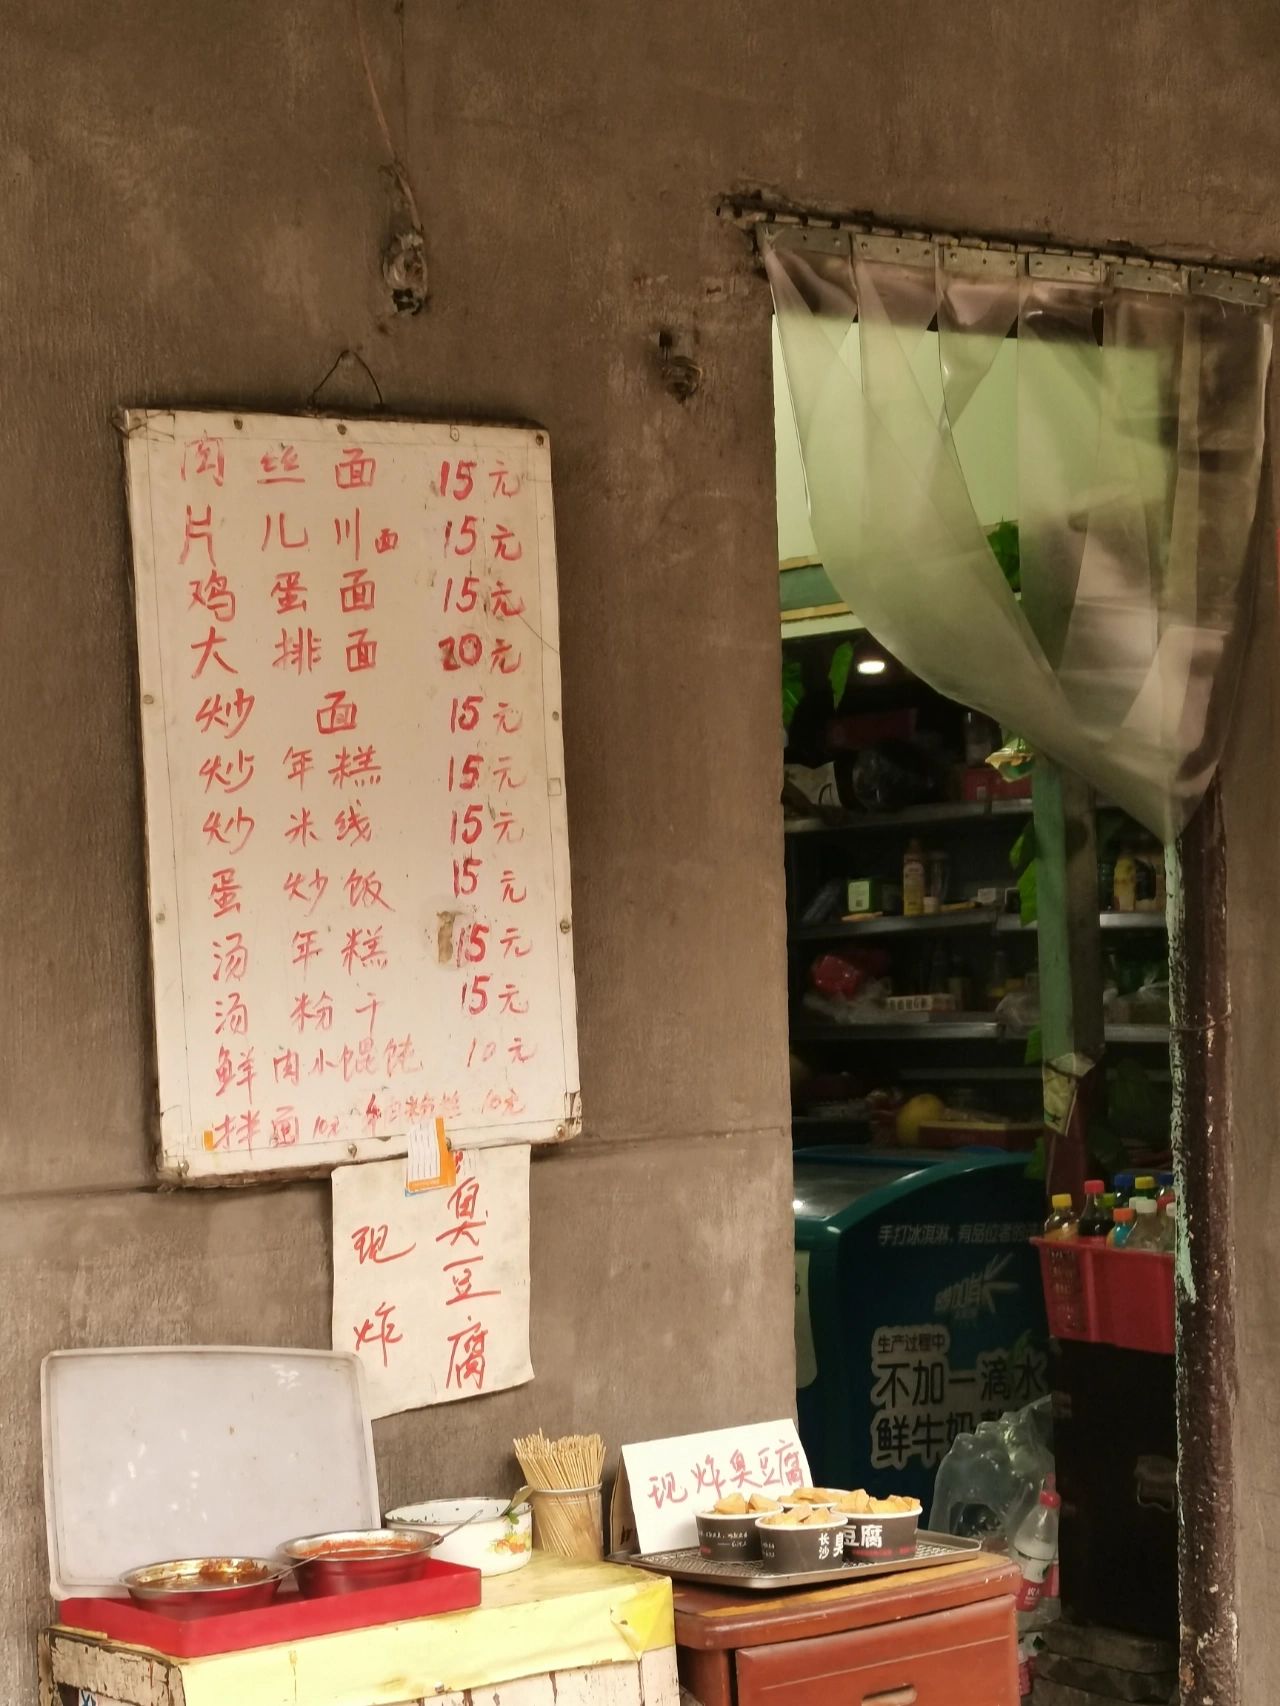 肉丝面 15元
片儿川面 15元
鸡蛋面 15元
大排面 20元
炒面 15元
炒年糕 15元
炒米线 15元
蛋炒饭 15元
汤年糕 15元
汤粉干 15元
鲜肉小馄饨 10元
拌面 10元 粉丝 10元
现炸
臭豆腐
现炸臭豆腐
长沙臭豆腐
豆腐
手打冰淇淋，有品位者的
生产过程中
不加一滴水
鲜牛奶